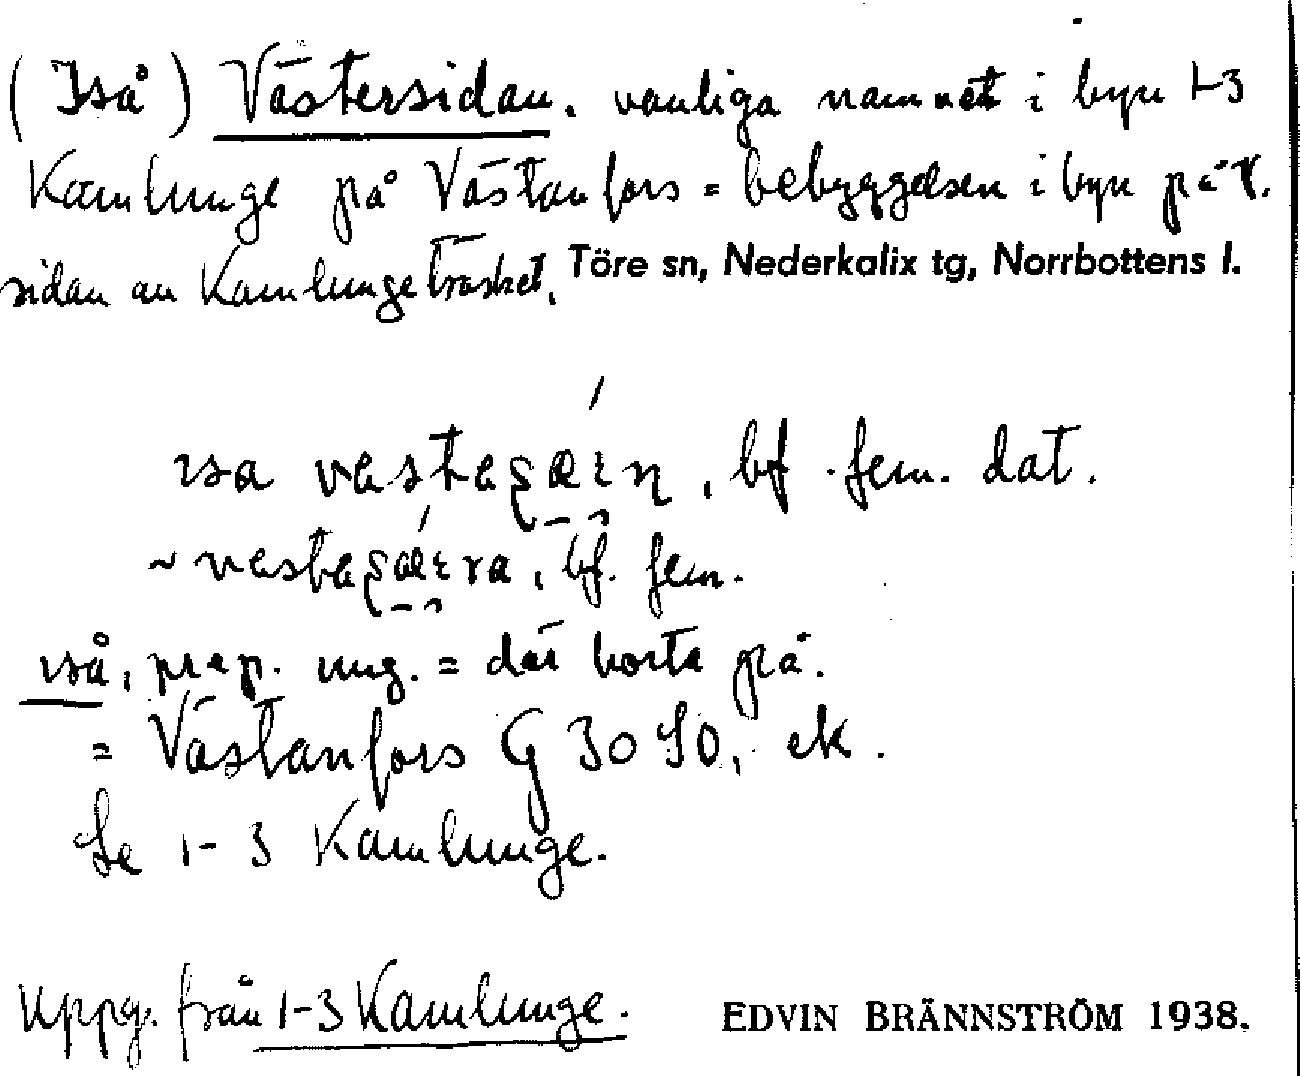 (Iså) Västersidan. vanliga namnet i byn 1-3
Kamlunge på Västanfors = bebyggelsen i byn på v.
sidan av Kamlungeträsket. Töre sn, Nederkalix tg, Norrbottens l.
bf. fem. dat.
~ bf. fem.
iså, prep. ung. = där borta på.
= Västanfors G 30 90, ek.
Se 1-3 Kamlunge.
Uppg. från 1-3 Kamlunge. EDVIN BRÄNNSTRÖM 1938.